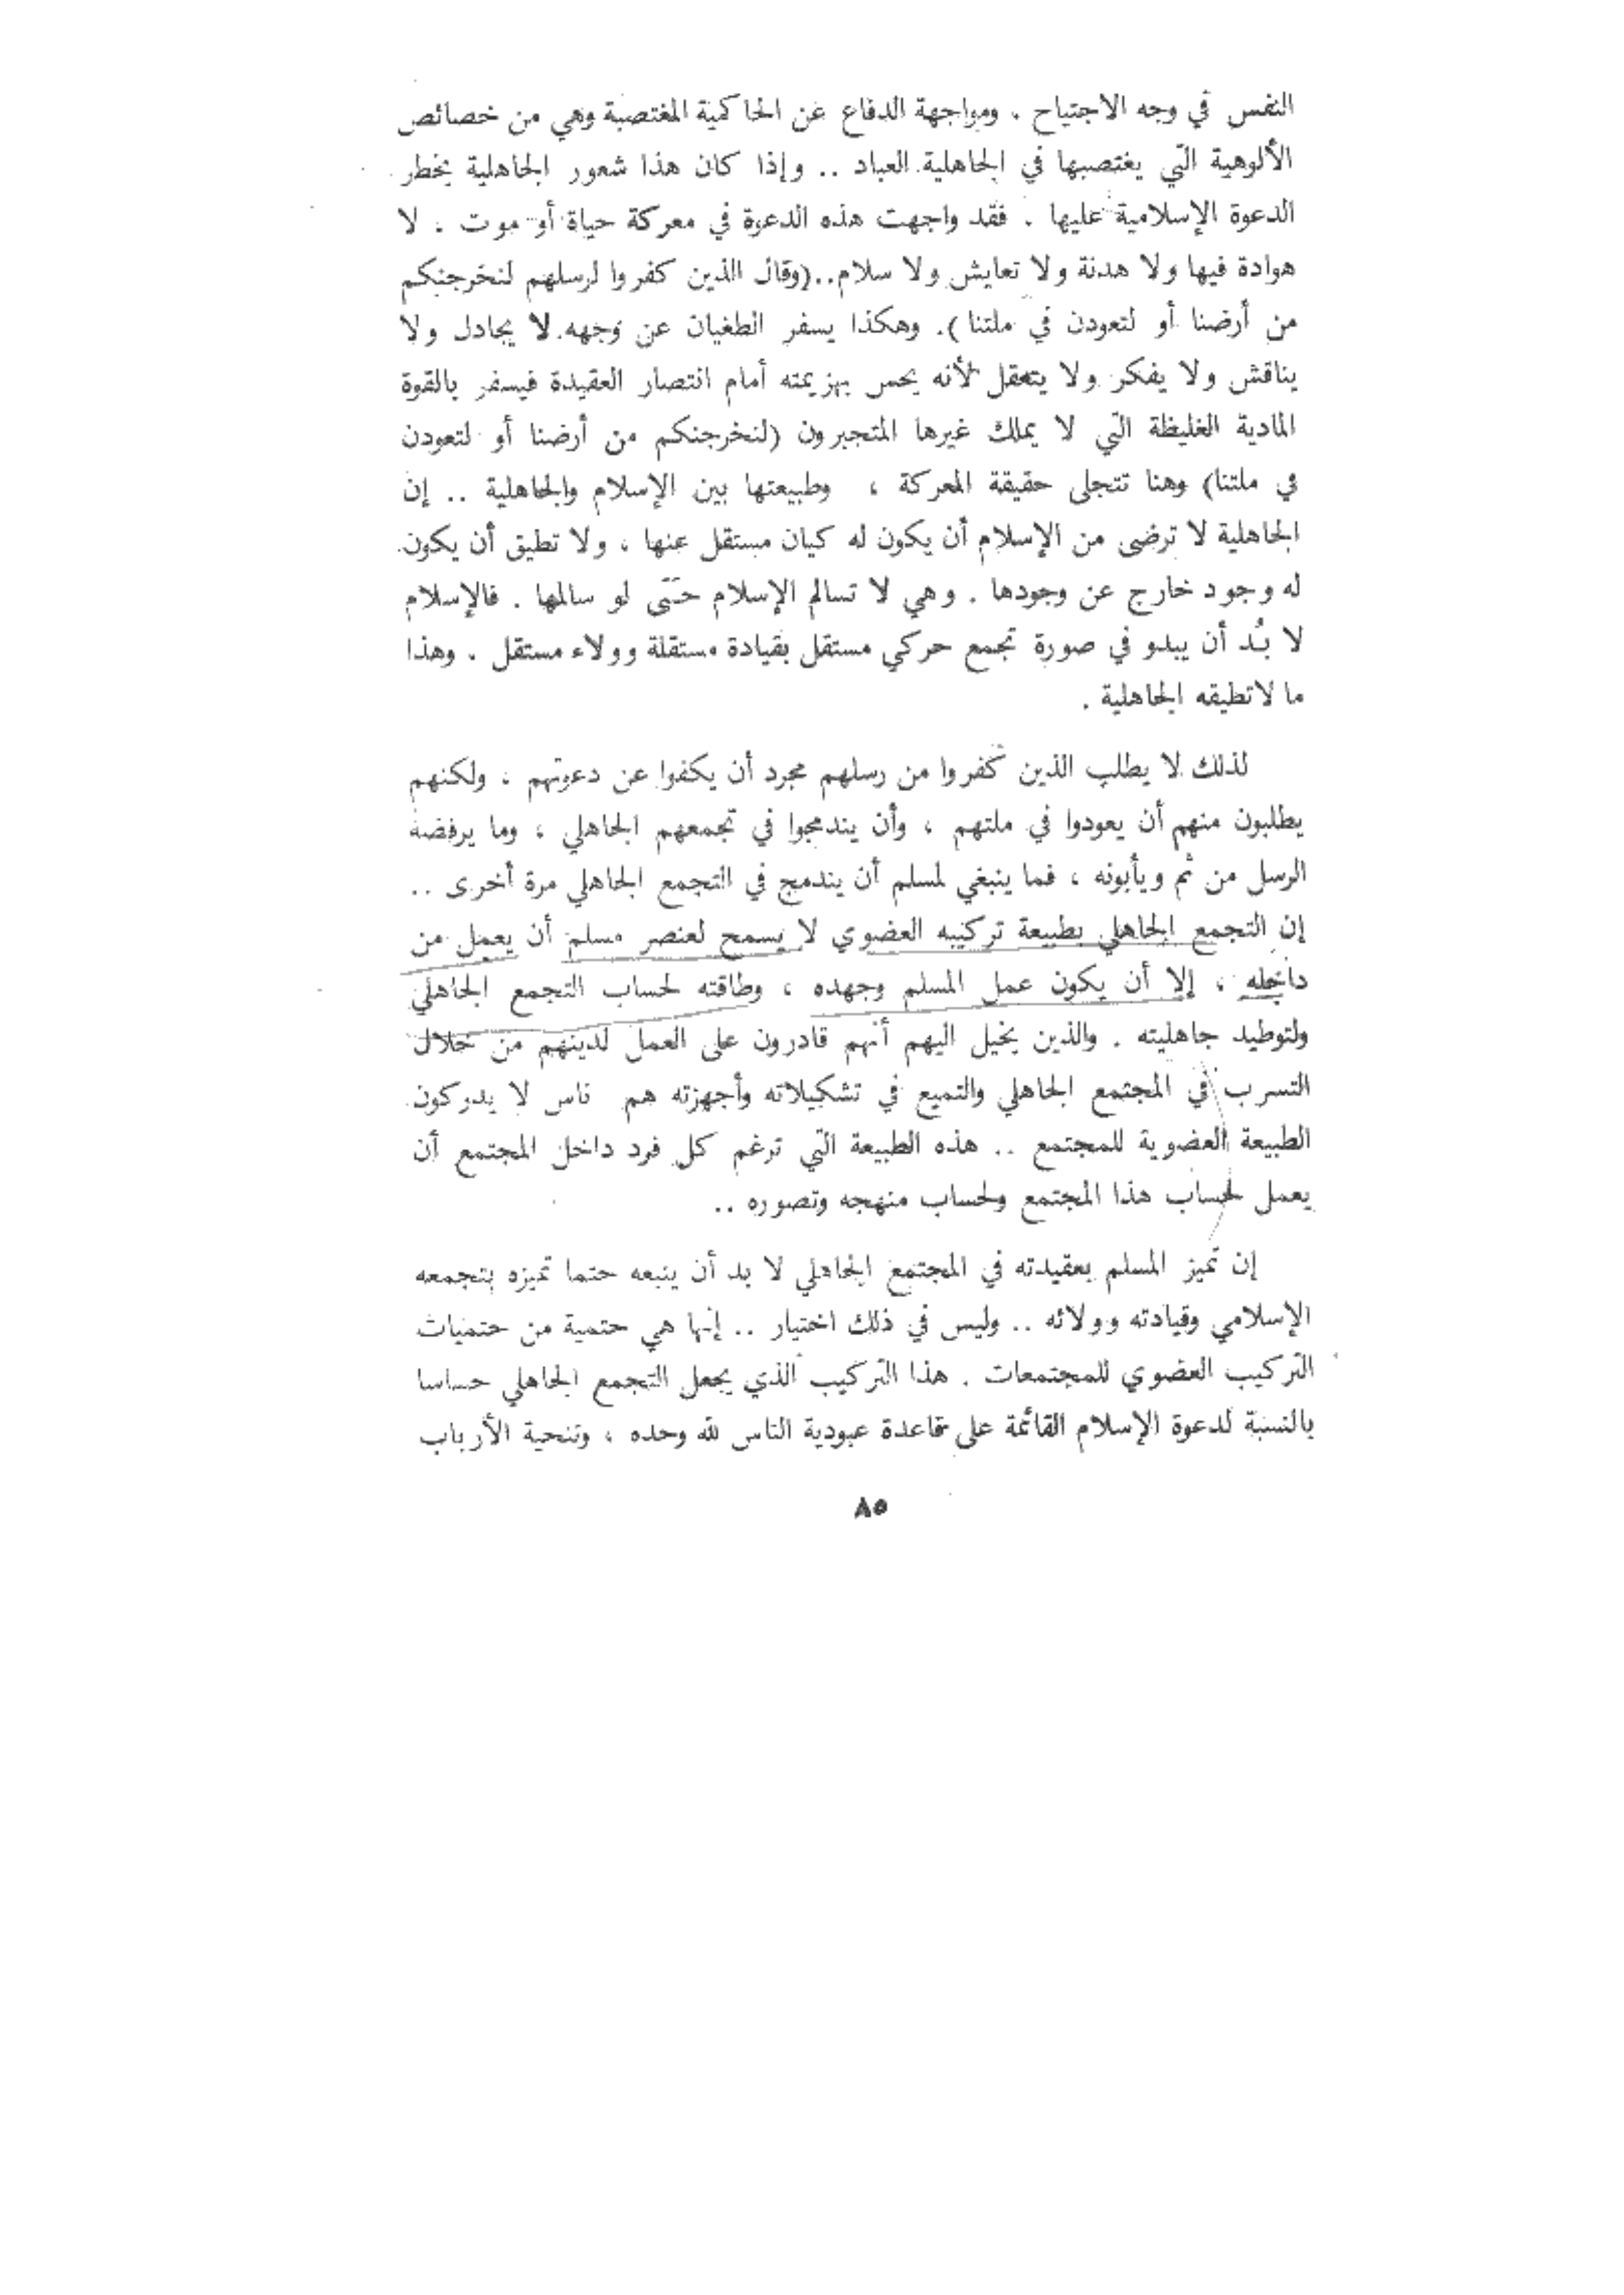 النفس في وجه الاجتياح . ومواجهة الدفاع عن الحاكمية المغتصبة وهي من خصائص
الألوهية التي يغتصبها في الجاهلية العباد .. وإذا كان هذا شعور الجاهلية بخطر
الدعوة الإسلامية عليها . فقد واجهت هذه الدعوة في معركة حياة أو موت . لا
هوادة فيها ولا هدنة ولا تعايش ولا سلام..(وقال الذين كفروا لرسلهم لنخرجنكم
من أرضنا أو لتعودن في ملتنا ). وهكذا يسفر الطغيان عن وجهه لا يجادل ولا
يناقش ولا يفكر ولا يتعقل لأنه يحس بهزيمته أمام انتصار العقيدة فيسفر بالقوة
المادية الغليظة التي لا يملك غيرها المتجبرون (لنخرجنكم من أرضنا أو لتعودن
في ملتنا) وهنا تتجلى حقيقة المعركة ، وطبيعتها بين الإسلام والجاهلية .. إن
الجاهلية لا ترضى من الإسلام أن يكون له كيان مستقل عنها ، ولا تطيق أن يكون
له وجود خارج عن وجودها . وهي لا تسالم الإسلام حتى لو سالمها . فالإسلام
لا بُد أن يبدو في صورة تجمع حركي مستقل بقيادة مستقلة وولاء مستقل . وهذا
ما لاتطيقه الجاهلية .
لذلك لا يطلب الذين كفروا من رسلهم مجرد أن يكفوا عن دعوتهم ، ولكنهم
يطلبون منهم أن يعودوا في ملتهم ، وأن يندمجوا في تجمعهم الجاهلي ، وما يرفضه
الرسل من ثم ويأبونه ، فما ينبغي لمسلم أن يندمج في التجمع الجاهلي مرة أخرى ..
إن التجمع الجاهلي بطبيعة تركيبه العضوي لا يسمح لعنصر مسلم أن يعمل من
داخله ، إلا أن يكون عمل المسلم وجهده ، وطاقته لحساب التجمع الجاهلي
ولتوطيد جاهليته . والذين يخيل اليهم أنهم قادرون على العمل لدينهم من خلال
التسرب في المجتمع الجاهلي والتميع في تشكيلاته وأجهزته هم ناس لا يدركون
الطبيعة العضوية للمجتمع .. هذه الطبيعة التي ترغم كل فرد داخل المجتمع أن
يعمل لحساب هذا المجتمع ولحساب منهجه وتصوره ..
إن تميز المسلم بعقيدته في المجتمع الجاهلي لا بد أن يتبعه حتما تميزه بتجمعه
الإسلامي وقيادته وولائه .. وليس في ذلك اختيار .. إنها هي حتمية من حتميات
التركيب العضوي للمجتمعات . هذا التركيب الذي يجعل التجمع الجاهلي حساسا
بالنسبة لدعوة الإسلام القائمة على قاعدة عبودية الناس لله وحده ، وتنحية الأرباب
٨٥